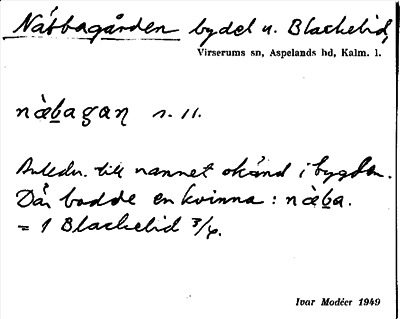 Näbbagården bydel u. Blackelid,
Virserums sn, Aspelands hd, Kalm. l.
nὰ̀bagaɳ n. 11.
Anledn. till namnet okänd i bygden.
Där bodde en kvinna: næ̀ba.
= 1 Blackelid 3/6.
Ivar Modéer 1949